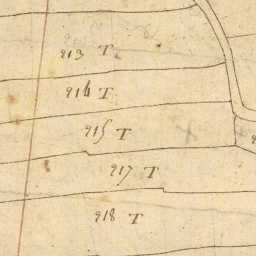 913 T
914 T
915 T
917 T
918 T